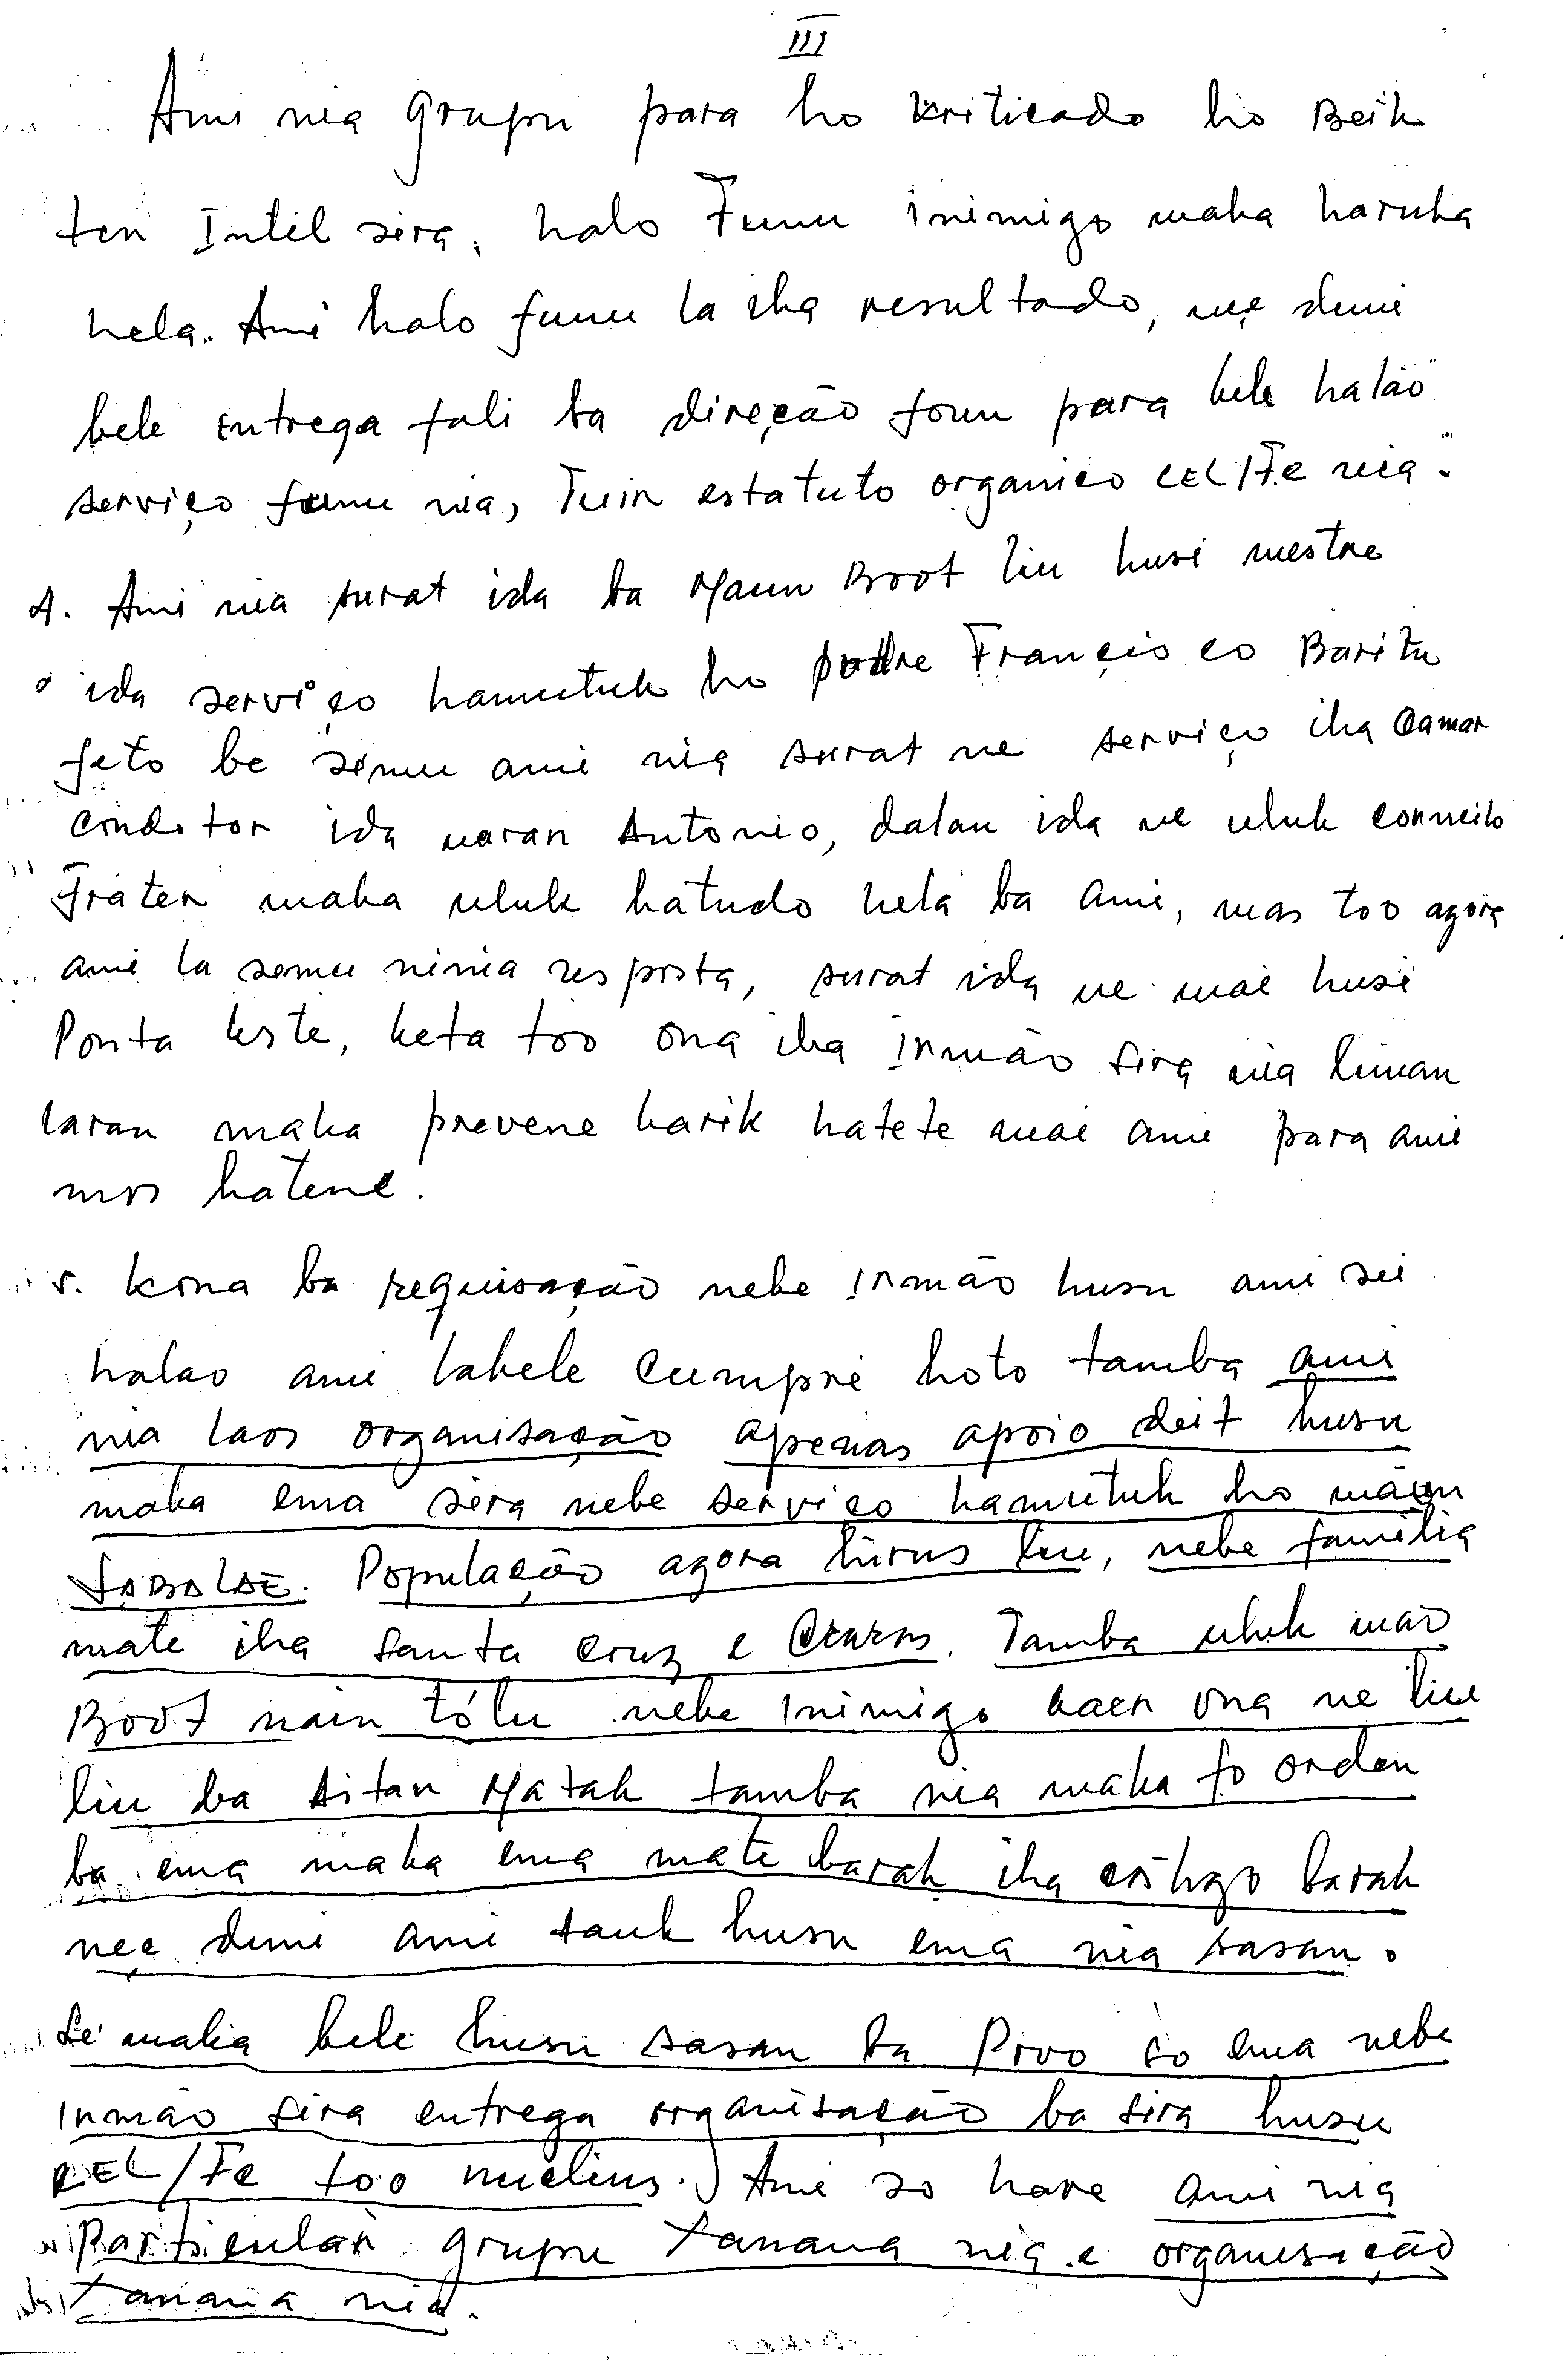 III
Ami nia grupu para ho kriticado ho Beik
ten Intel sira, halo Funu inimigo maka haruka
hela. Ami halo funu la iha resultado, nee duni
bele entrega fali ba direção foun para bele halão
serviço funu nia, Tuir estatuto organico CEL/FC nia.
4. Ami nia surat ida ba Maun Boot liu husi mestre
ida serviço hamutuk ho padre Francisco Baritu
feto be simu ami nia surat ne serviço iha Camar
condotor ida naran Antonio, dalan ida ne uluk conneito
Frater maka uluk hatudo hela ba ami, mas too agora
ami la semu ninia resposta, surat ida ne mai husi
Ponta leste, keta too ona iha inmão sira nia liman
laran maka prevene karik hatete mai ami para ami
mos hatene.
5. kona ba requisação nebe inmão husu ami sei
halao ami labele cumpre hoto tamba ami
nia laos organisação apenas apoio deit husu
maka ema sira nebe serviço hamutuk ho mäun
SABALAE. População agora hirus liu, nebe familia
mate iha Santa Cruz e Craras. Tamba uluk mao
Boot nain tólu nebe inimigo kaer ona ne liu
liu ba Aitan Matak tamba nia maka fo orden
ba ema maka ema mate barak iha
 barak
nee duni ami tauk husu ema nia sasan.
Se maka bele husu sasan ba Povo so ema nebe
inmão sira entrega organisação ba sira husu
CEL/FC too nucleus. Ami so hare ami nia
Particular grupu Xanana nia e organisação
Xanana nia.